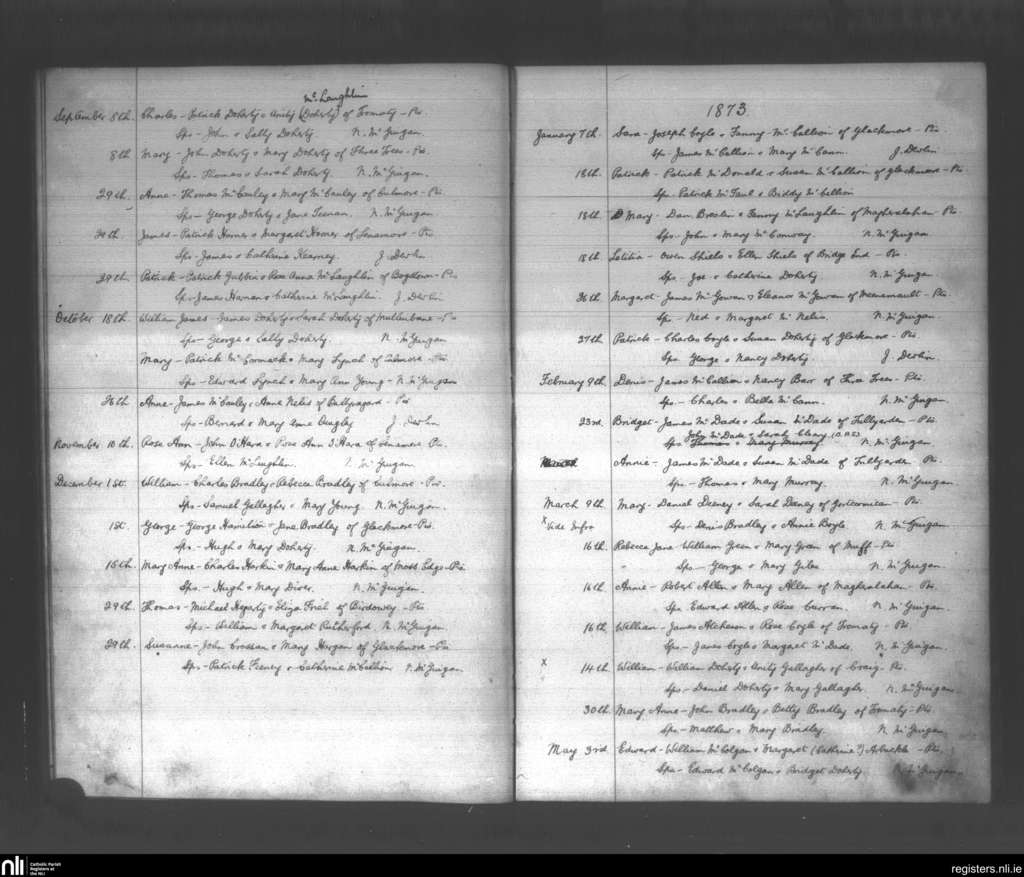 Mc Laughlin
September 8th. Charles - Patrick Doherty & Unity (Doherty) of Tromaty - Prs.
Sps - John & Sally Doherty. N. McGuigan.
8th Mary - John Doherty & Mary Doherty of Three Trees - Prs.
Sps - Thomas & Sarah Doherty. N. McGuigan.
29th. Anne - Thomas McCauley & Mary McCauley of Culmore - Prs.
Sps - George Doherty & Jane N. McGuigan.
James - Patrick Homer & Margaret Homer of - Prs
Sps - James & Catherine Kearney. J. Devlin
29th. Patrick - Patrick & Rose Anna McLaughlin of - Prs
Sps - James & Catherine McLaughlin. J. Devlin
October 18th. William James - James Doherty & Sarah Doherty of
Sps - George & Sally Doherty. N. McGuigan
Mary - Patrick McCormack & Mary Lynch of Culmore - Prs
Sps - Edward Lynch & Mary Ann Young - N. McGuigan
26th Anne - James McCauley & Anne Nelis of - Prs
Sps - Bernard & Mary J. Devlin
November 10th. Rose Ann - John O'Hara & Rose Ann O'Hara of Prs.
Sps - Ellen McLaughlin. N. McGuigan
December 1st. William - Charles Bradley & Rebecca Bradley of Culmore - Prs.
Sps - Samuel Gallagher & Mary Young. N. McGuigan.
1st. George - George Hamilton & Jane Bradley of Glackmore - Prs.
Sps - Hugh & Mary Doherty. N. McGuigan.
15th. Mary Anne - Charles Harkin & Mary Anne Harkin of Moss Edge - Prs.
Sps - Hugh & Mary Diver. N. McGuigan.
29th. Thomas - Michael & Eliza of Birdowey - Prs
Sps - William & Margaret Rutherford N. McGuigan
29th. Susanne - John Crossan & Mary Hargan of Glackmore - Prs
Sps - Patrick Feeney & Catherine McCallion N. McGuigan.
1873.
January 7th. Sara - Joseph Coyle & Fanny McCallion of Glackmore - Prs
Sps - James McCallion & Mary McCann. J. Devlin
18th. Patrick - Patrick McDonald & Susan McCallion of Glackmore - Prs
Sps - Patrick McFaul & Biddy McCallion
18th. Mary - Dan. Breslin & Fanny McLaughlin of Magheralahan - Prs.
Sps - John & Mary McConway. N. McGuigan.
18th Letitia - Owen Shiels & Ellen Shiels of Bridge End - Prs.
Sps - Jos. & Catherine Doherty N. McGuigan
26th. Margaret - James McGowan & Eleanor McGowan of - Prs.
Sps - Ned & Margaret McNelis. N. McGuigan.
27th Patrick - Charles Coyle & Susan Doherty of Glackmore - Prs
Sps George & Nancy Doherty. J. Devlin
February 9th. Denis - James McCallion & Nancy Barr of Three Trees - Prs.
Sps - Charles & Bella McCann. N. McGuigan.
23rd. Bridget - James McDade & Susan McDade of Tullyarden - Prs.
John McDade & Sarah Cleary
Sps - Thomas & Mary Murray. N. McGuigan
Annie - James McDade & Susan McDade of Tullyarden Prs.
Sps - Thomas & Mary Murray. N. McGuigan.
March 9th. Mary - Daniel Deeney & Sarah Deeney of Gortcormican - Prs.
x Vide Infra Sps - Denis Bradley & Annie Boyle N. McGuigan
16th. Rebecca Jane - William Green & Mary Green of Muff - Prs
Sps - George & Mary Giles N. McGuigan.
16th. Annie - Robert Allen & Mary Allen of Magheralahan - Prs.
Sps. Edward Allen & Rose Curran. N. McGuigan.
16th William - James Atcheson & Rose Coyle of Tromaty - Prs
Sps - James Coyle & Margaret McDade. N. McGuigan.
x 14th. William - William Doherty & Unity Gallagher of Craig - Prs.
Sps - Daniel Doherty & Mary Gallagher. N. McGuigan.
30th. Mary Anne - John Bradley & Betty Bradley of Tromaty - Prs.
Sps - Matthew & Mary Bradley. N. McGuigan
May 3rd. Edward - William McColgan & Margaret (Catherine?) Arbuckle - Prs.
Sps - Edward McColgan & Bridget Doherty. N. McGuigan.
nli
Catholic Parish
Registers at
the NLI
registers.nli.ie